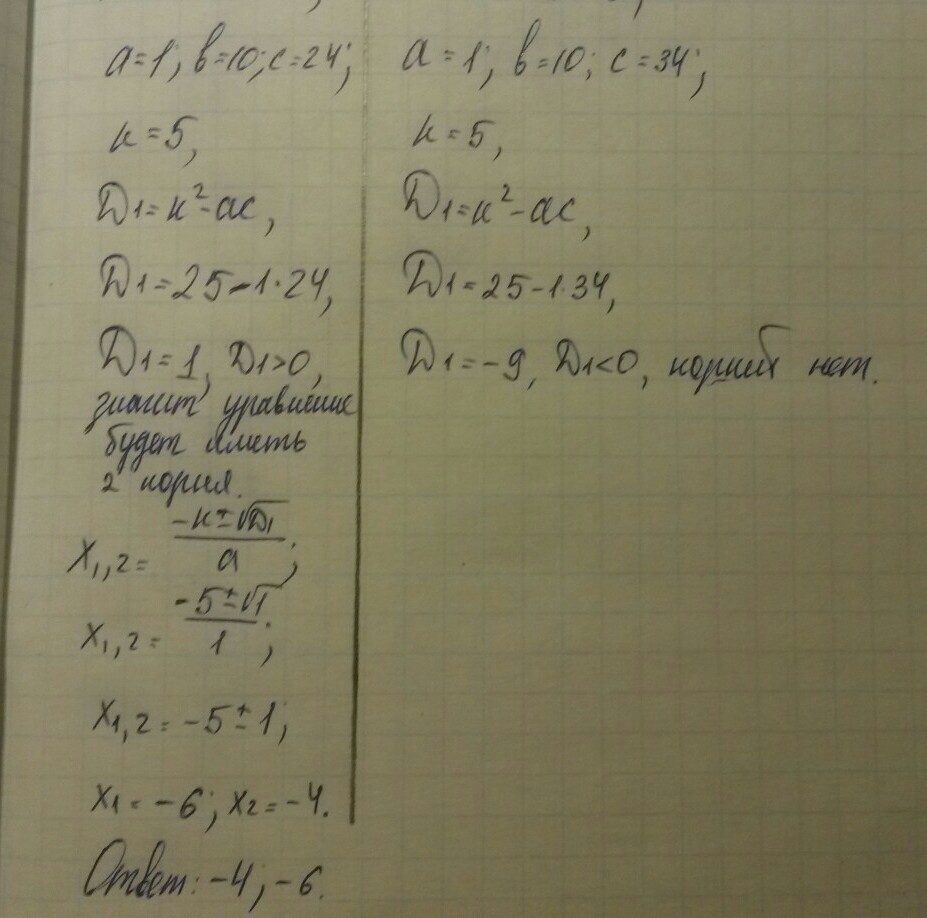 a=1; в=10; c=24;
к=5,
D1=к²-ac,
D1=25-1·24,
D1=1, D1>0,
значит уравнение
будет иметь
2 корня.
x1,2= -к±√D1 / a ;
x1,2= -5±√1 / 1 ;
x1,2=-5±1;
x1=-6; x2=-4.
Ответ: -4; -6.
a=1; в=10; c=34;
к=5,
D1=к²-ac,
D1=25-1·34,
D1=-9, D1<0, корней нет.